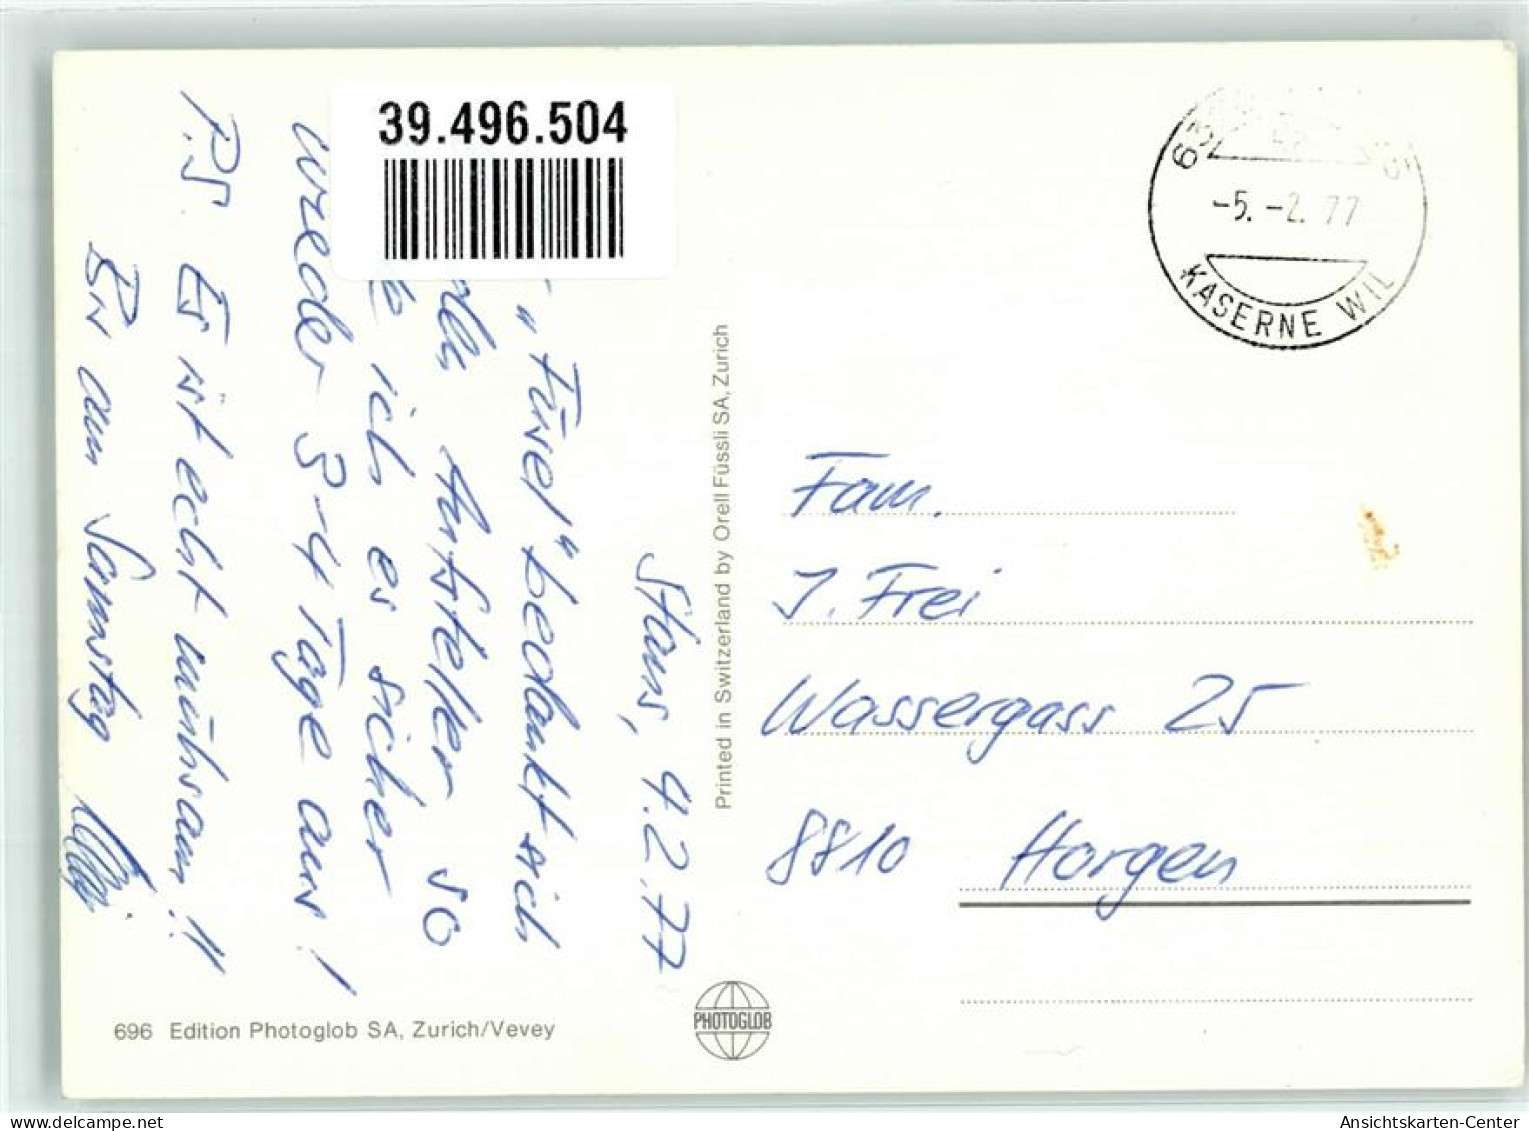 39.496.504
-5.-2.77
KASERNE WIL
Stans, 4.2.77
"Füsel" bedankt sich
Aufsteller, so
ich es sicher
wieder 3-4 Tage aus!
P.S. Es ist echt mühsam!!
Bin am Samstag
Fam.
J. Frei
Wassergass 25
8810 Horgen
Printed in Switzerland by Orell Füssli SA, Zurich
696 Edition Photoglob SA, Zurich/Vevey
PHOTOGLOB
www.delcampe.net
Ansichtskarten-Center